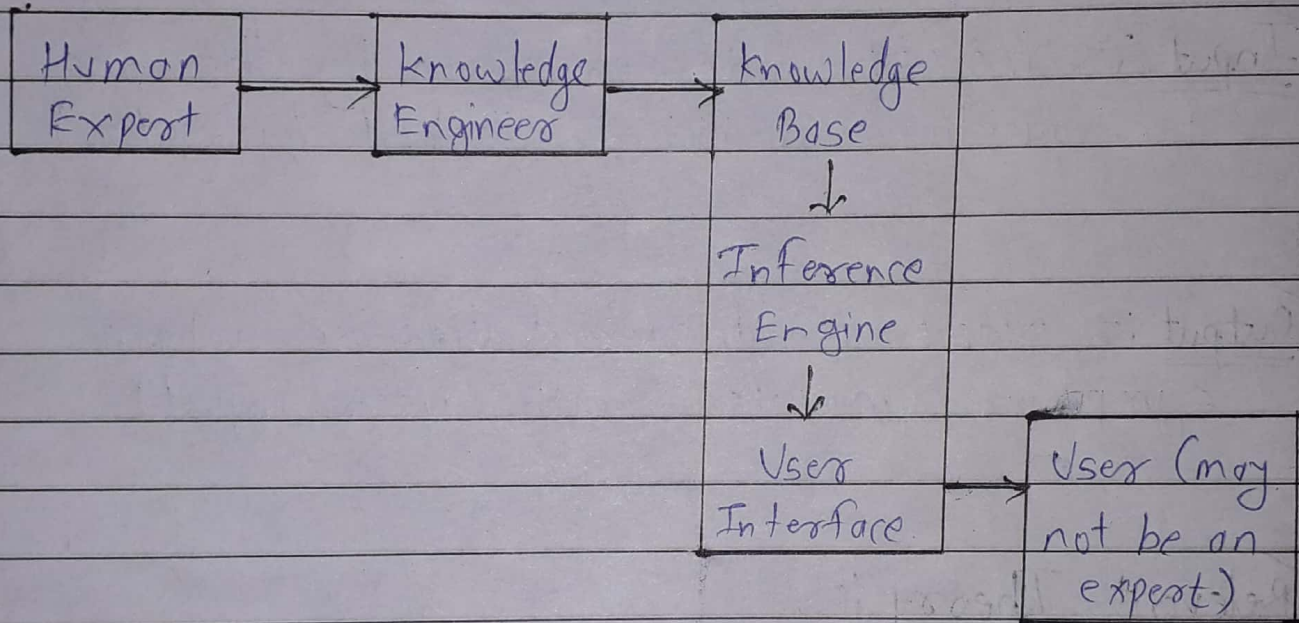 Human
Expert
Knowledge
Engineer
Knowledge
Base
Inference
Engine
User
Interface
User (may
not be an
expert.)